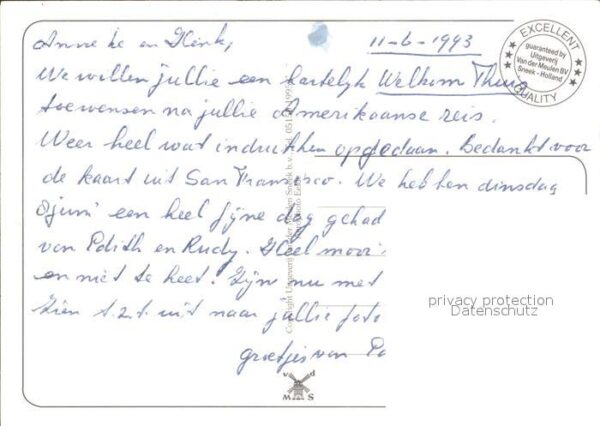 Anneke en Henk,
11-6-1993
We willen jullie een hartelijk Welkom Thuis
toewensen na jullie Amerikaanse reis.
Weer heel wat indrukken opgedaan. Bedankt voor
de kaart uit San Francisco. We hebben dinsdag
8 juni een heel fijne dag gehad
van Edith en Rudy. Heel mooi
en niet te heet. Zijn nu met
zien t.z.t. uit naar jullie foto
groetjes van
EXCELLENT QUALITY
guaranteed by
Uitgeverij
Van der Meulen BV
Sneek - Holland
privacy protection
Datenschutz
v d
M S